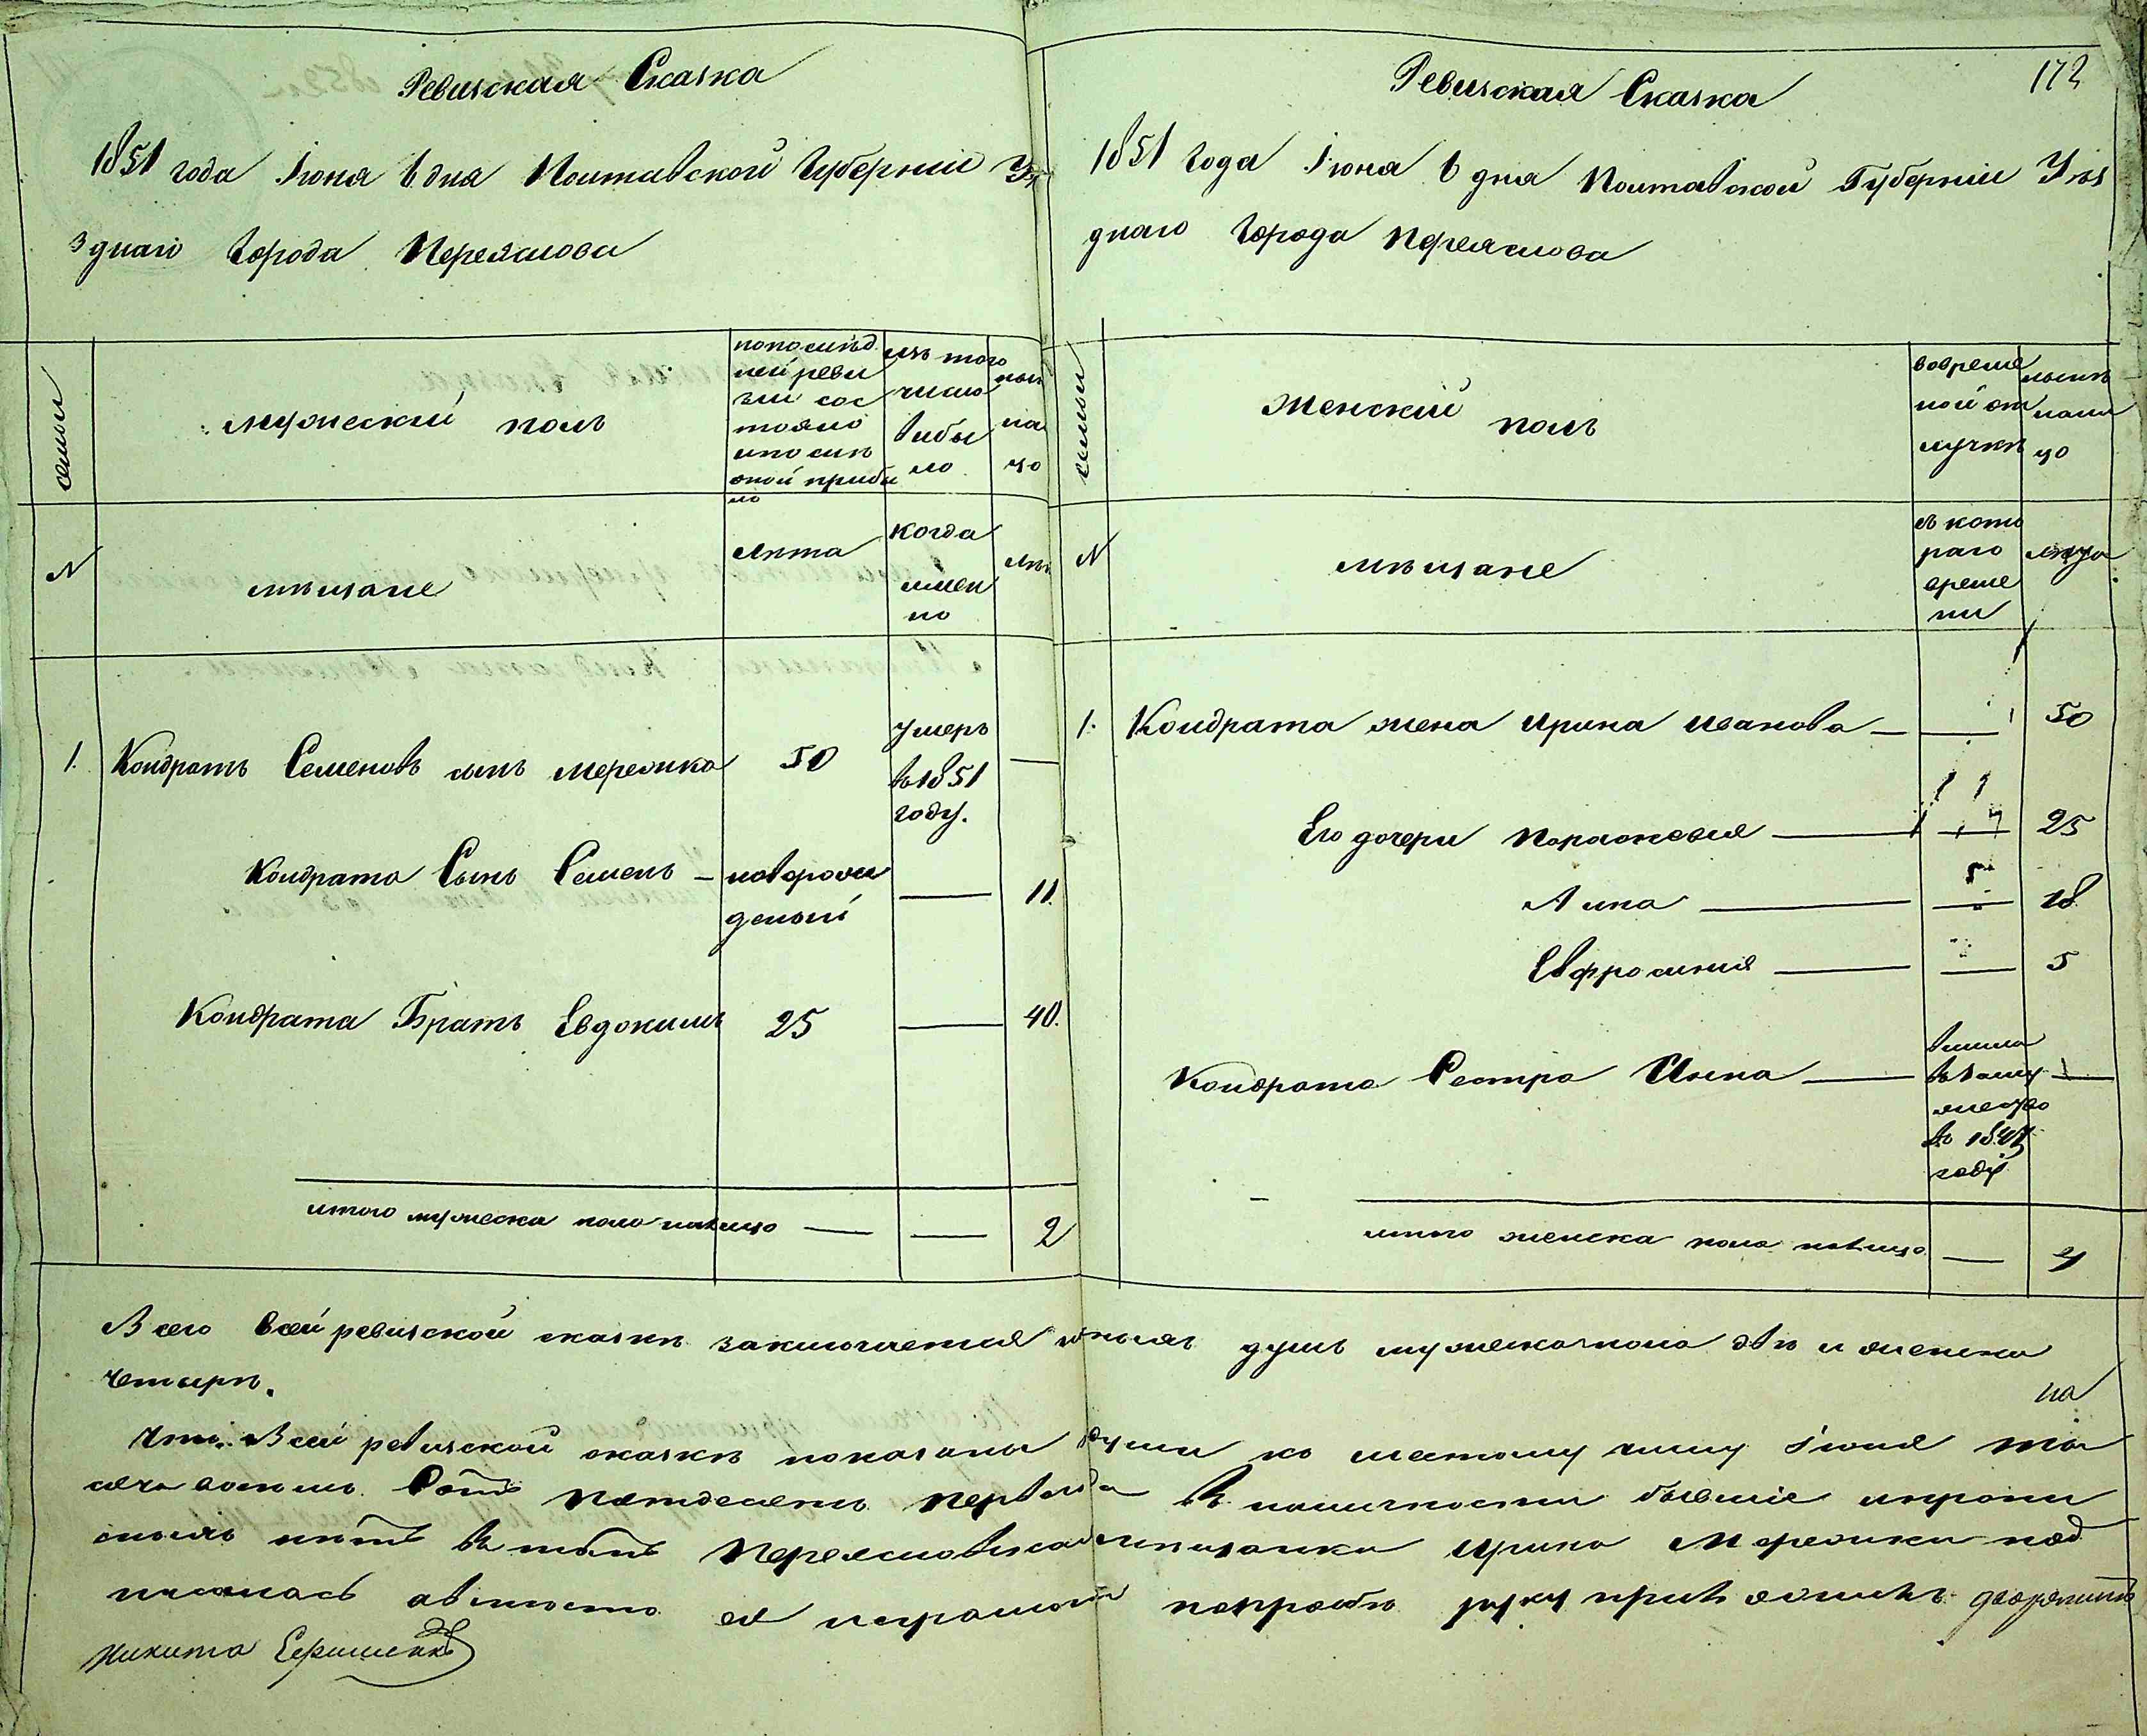 Ревизская Сказка
1851 года Іюня 6 дня Полтавской Губерніи Уѣ
зднаго Города Переяслова
семьи
мужескій полъ
попослѣд
ней реви
зіи сос
тояло
ипослѣ
оной прибы
ло
изъ того
числа
выбы
ло
нын
на
цо
N
мѣщане
лѣта
когда
имен
но
лѣт
1. Кондратъ Семеновъ сынъ Мережка 50
умеръ
въ 1851
году.
—
Кондрата Сынъ Семенъ —новорож
денный
— 11.
Кондрата Братъ Евдокимъ 25 — 40.
итого мужеска пола налицо — — 2
Ревизская Сказка
172
1851 Года Іюня 6 дня Полтавской Губерніи Уѣз
днаго Города Переяслова
семьи
Женскій полъ
вовремен
ной от
лучкѣ
нали
цо
N
мѣщане
съ кото
раго
време
ни
лѣта
1. Кондрата жена Ирина Иванова — — 50
Его дочери Парасковия — — 25
Анна — — 18
Евфросиния — — 5
Кондрата Сестра Анна —
вышла
въ заму
жество
въ 1847
году
—
итого женска пола налицо — 4
Всего всей ревизской сказкѣ заключается душъ мужеска пола двѣ и женска
четыре.
Что в сей ревизской сказкѣ показаны души ко шестому числу Іюня ты
на
сяча восемь сотъ пятдесятъ перваго въ наличности бывшіе и
нѣтъ въ томъ Переясловская мѣщанка Ирина Мережки под
писалась авместо ея неграмот попрозбѣ руку приложилъ дворянинъ
Никита